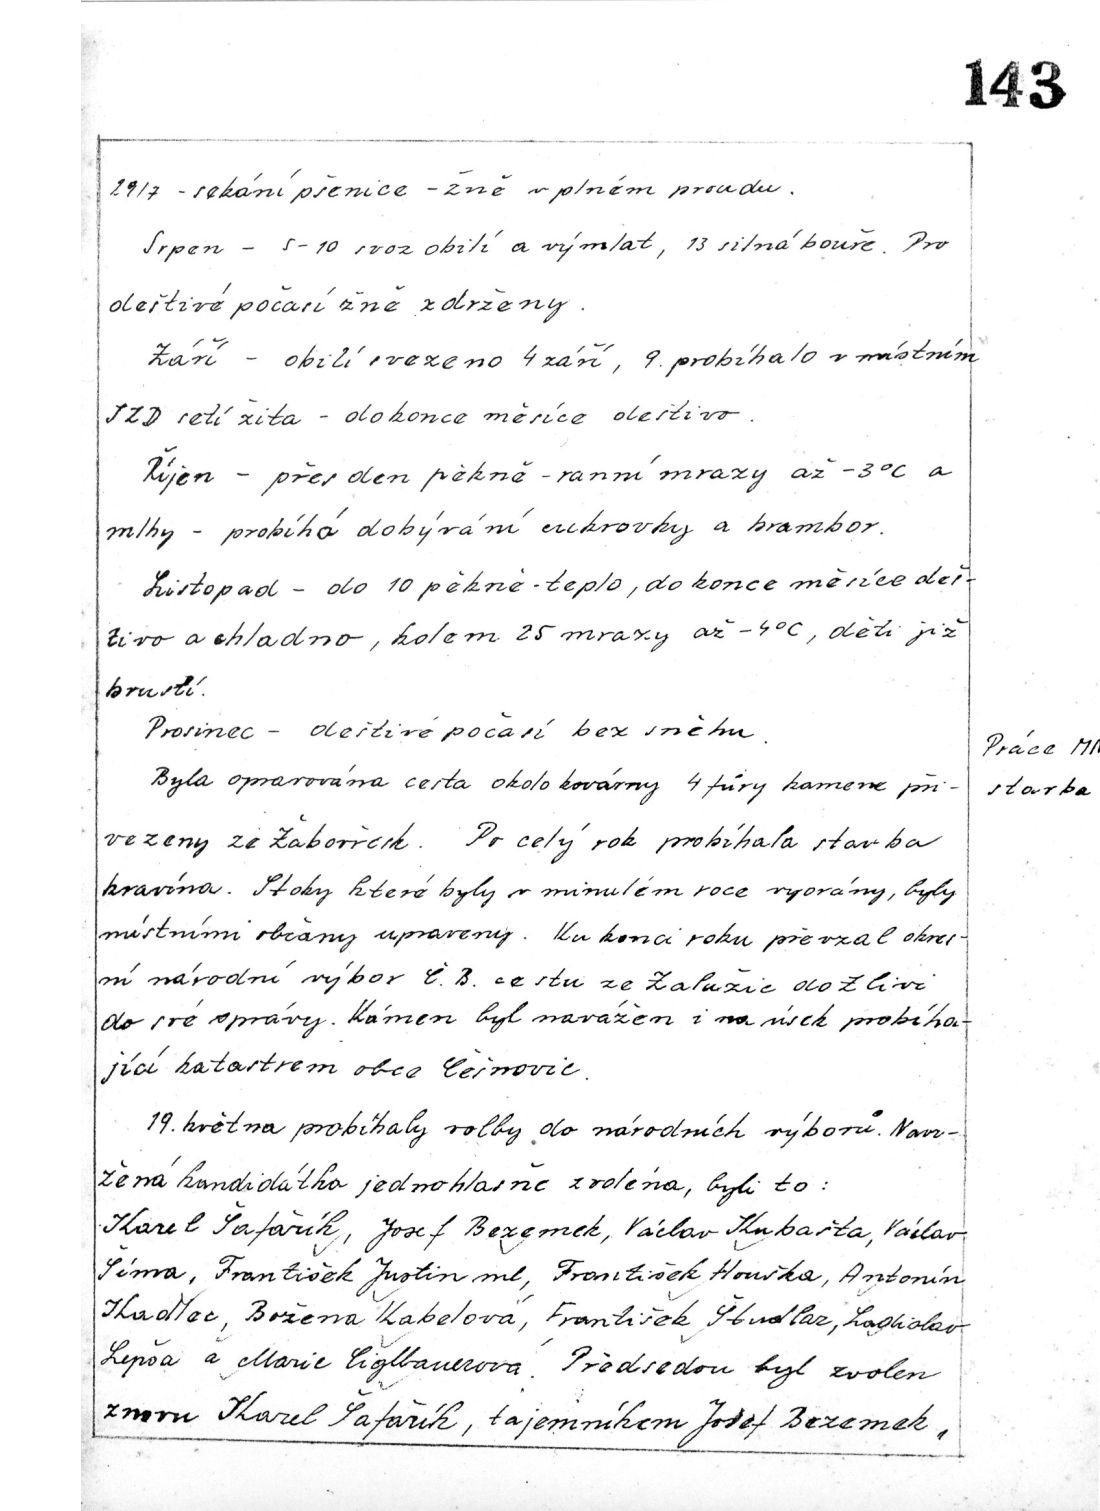 143
29/7 - sekání pšenice - žně v plném proudu.
Srpen - 5-10 svoz obilí a výmlat, 13 silná bouře. Pro
deštivé počasí žně zdrženy.
Září - obilí svezeno 4 září, 9. probíhalo v místním
JZD setí žita - do konce měsíce deštivo.
Říjen - přes den pěkně - ranní mrazy až -3°C a
mlhy - probíhá dobývání cukrovky a brambor.
Listopad - do 10 pěkně - teplo, do konce měsíce deš-
tivo a chladno, kolem 25 mrazy až -4°C, děti již
bruslí.
Prosinec - deštivé počasí bez sněhu.
Práce MN
Byla opravována cesta okolo kovárny 4 fůry kamene při-
stavba
vezeny ze Záboříčsk. Po celý rok probíhala stavba
kravína. Stoky které byly v minulém roce vyorány, byly
místními občany upraveny. Ku konci roku převzal okres-
ní národní výbor Č.B. cestu ze Zalužic do Zlivi
do své správy. Kámen byl navážen i na úsek probíha-
jící katastrem obce Češnovic.
19. května probíhaly volby do národních výborů. Navr-
žená kandidátka jednohlasně zvolena, byli to:
Karel Šafařík, Josef Bezemek, Václav Kubašta, Václav
Šíma, František Justin ml, František Houška, Antonín
Kadlec, Božena Kabelová, František Študlar, Ladislav
Lepša a Marie Číglbauerová. Předsedou byl zvolen
znovu Karel Šafařík, tajemníkem Josef Bezemek,